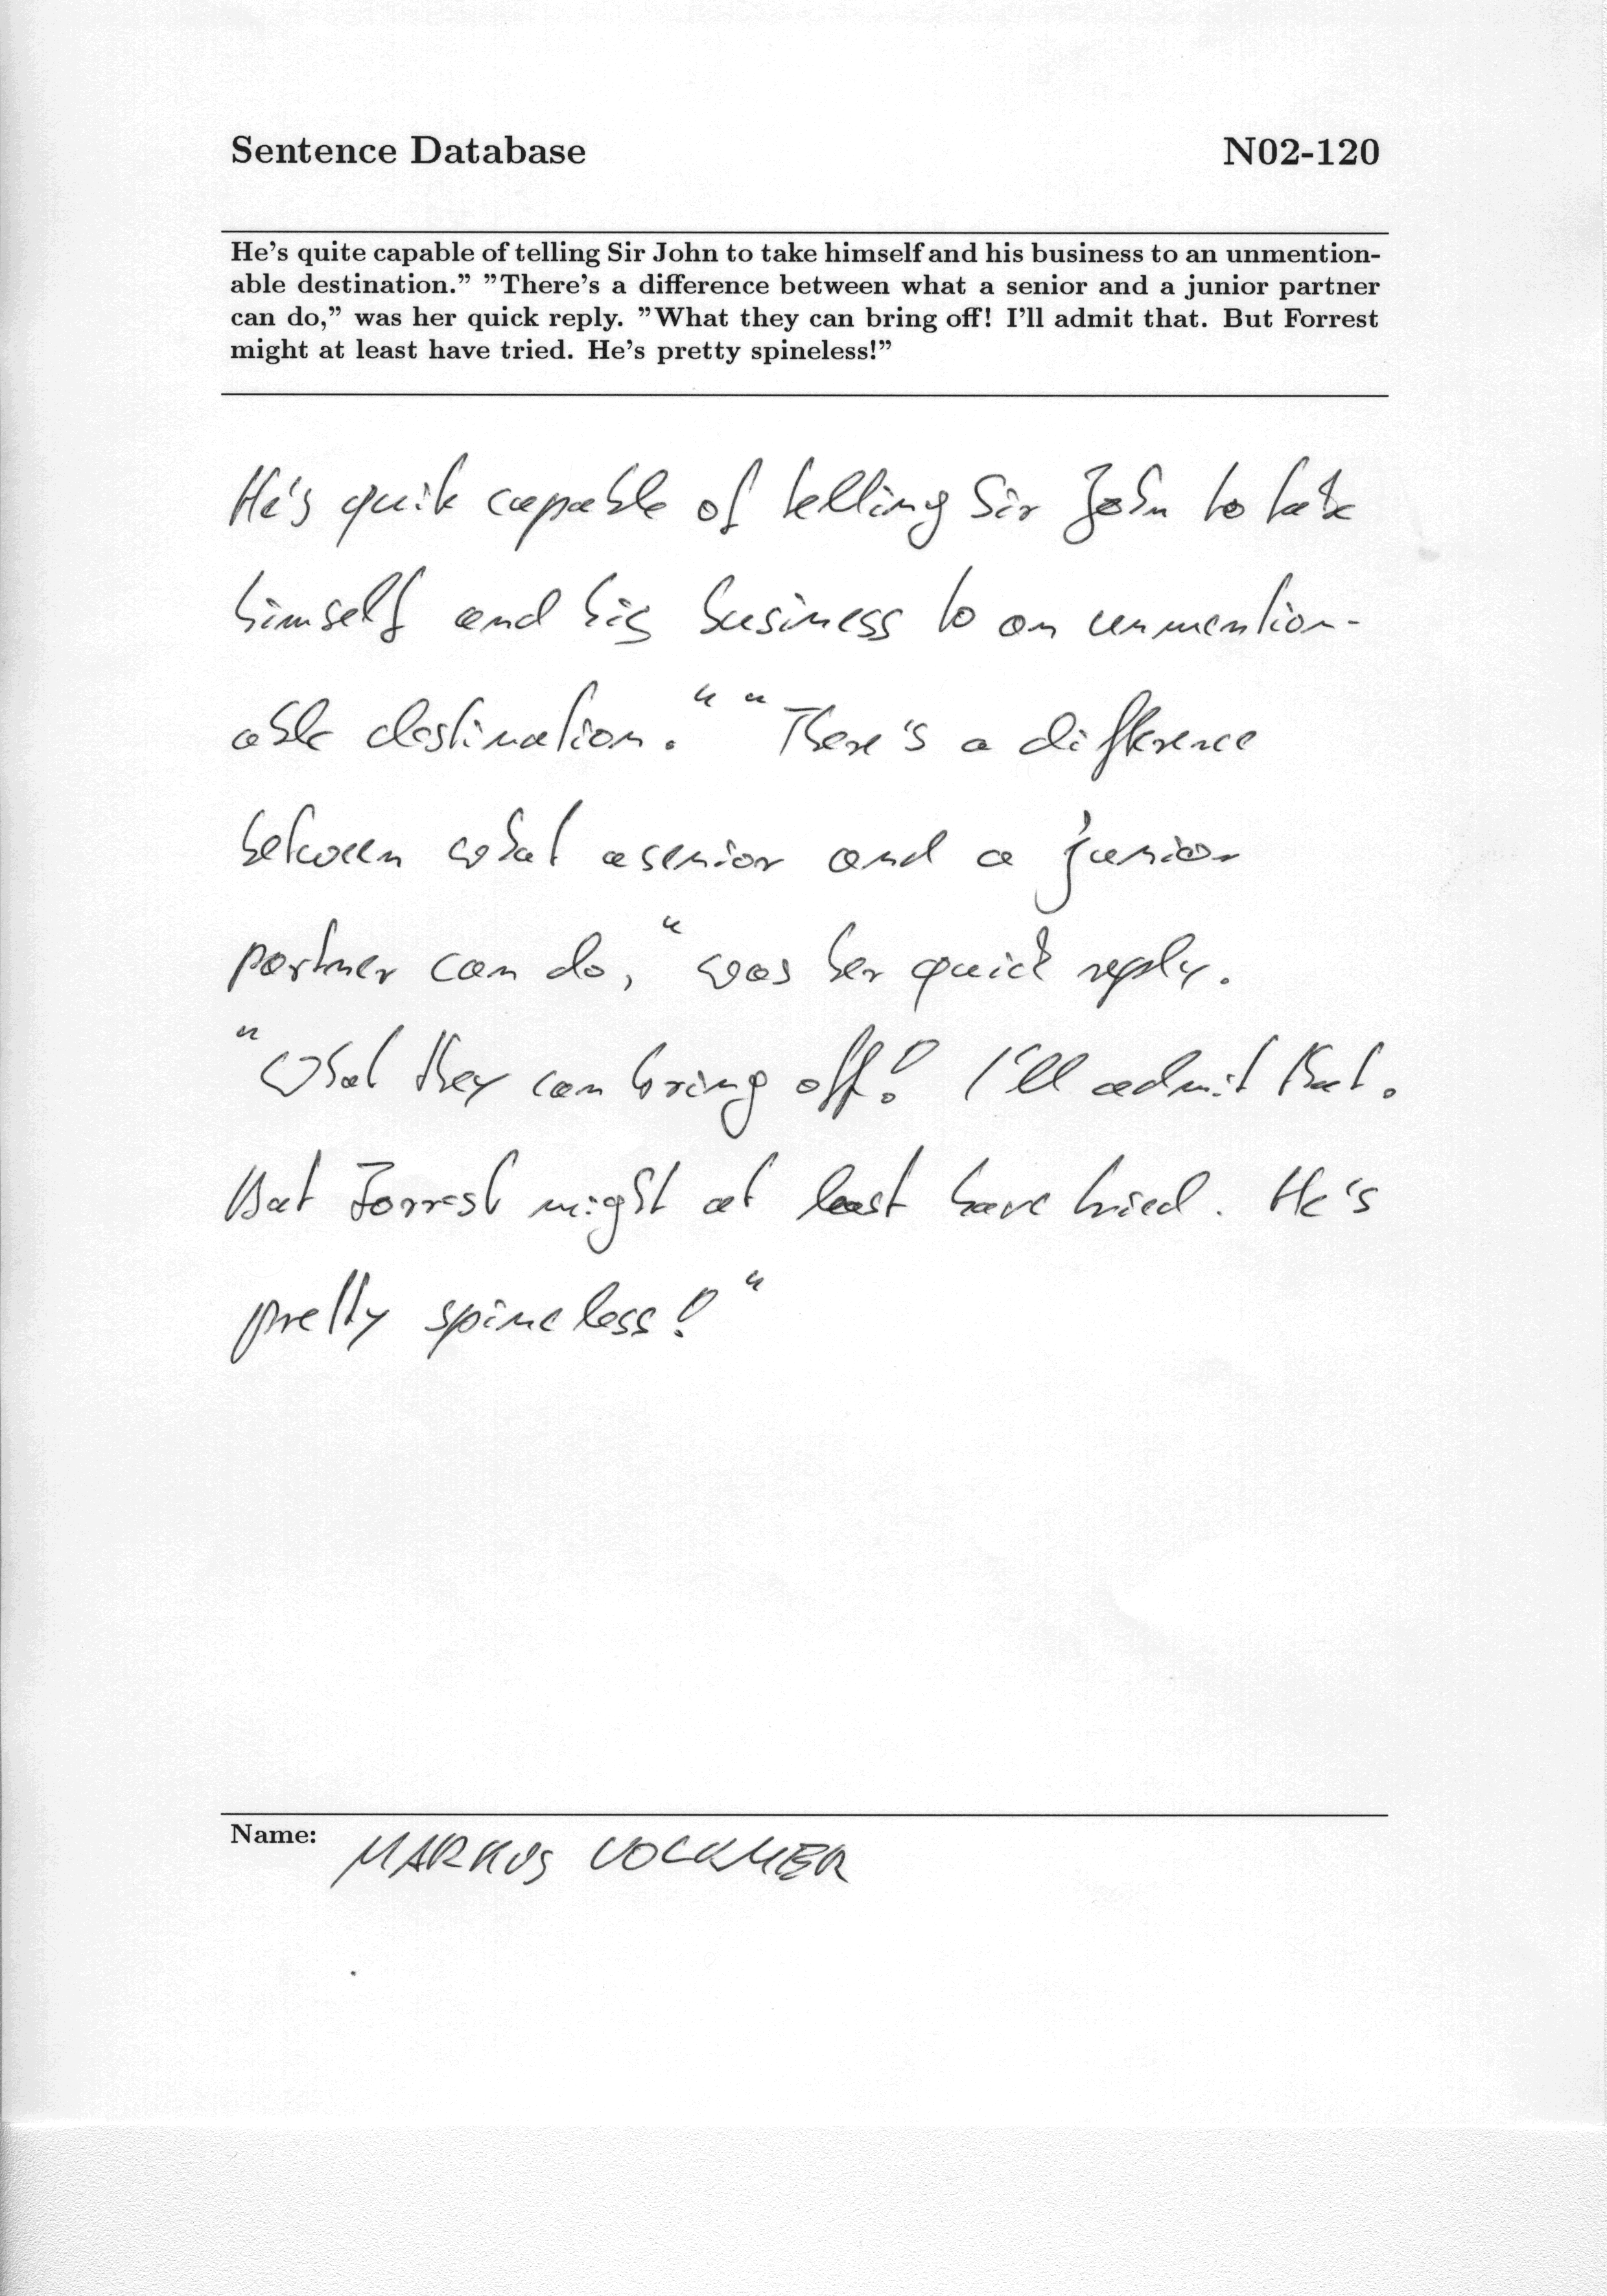 Sentence Database N02-120
He's quite capable of telling Sir John to take himself and his business to an unmention-
able destination.” ”There's a difference between what a senior and a junior partner
can do,” was her quick reply. ”What they can bring off! I'll admit that. But Forrest
might at least have tried. He's pretty spineless!”
He's quite capable of telling Sir John to take
himself and his business to an unmention-
able destination.“ “There's a difference
between what a senior and a junior
partner can do,“ was her quick reply.
“What they can bring off! I'll admit that.
But Forrest might at least have tried. He's
pretty spineless!“
Name: MARKUS VOCKMER